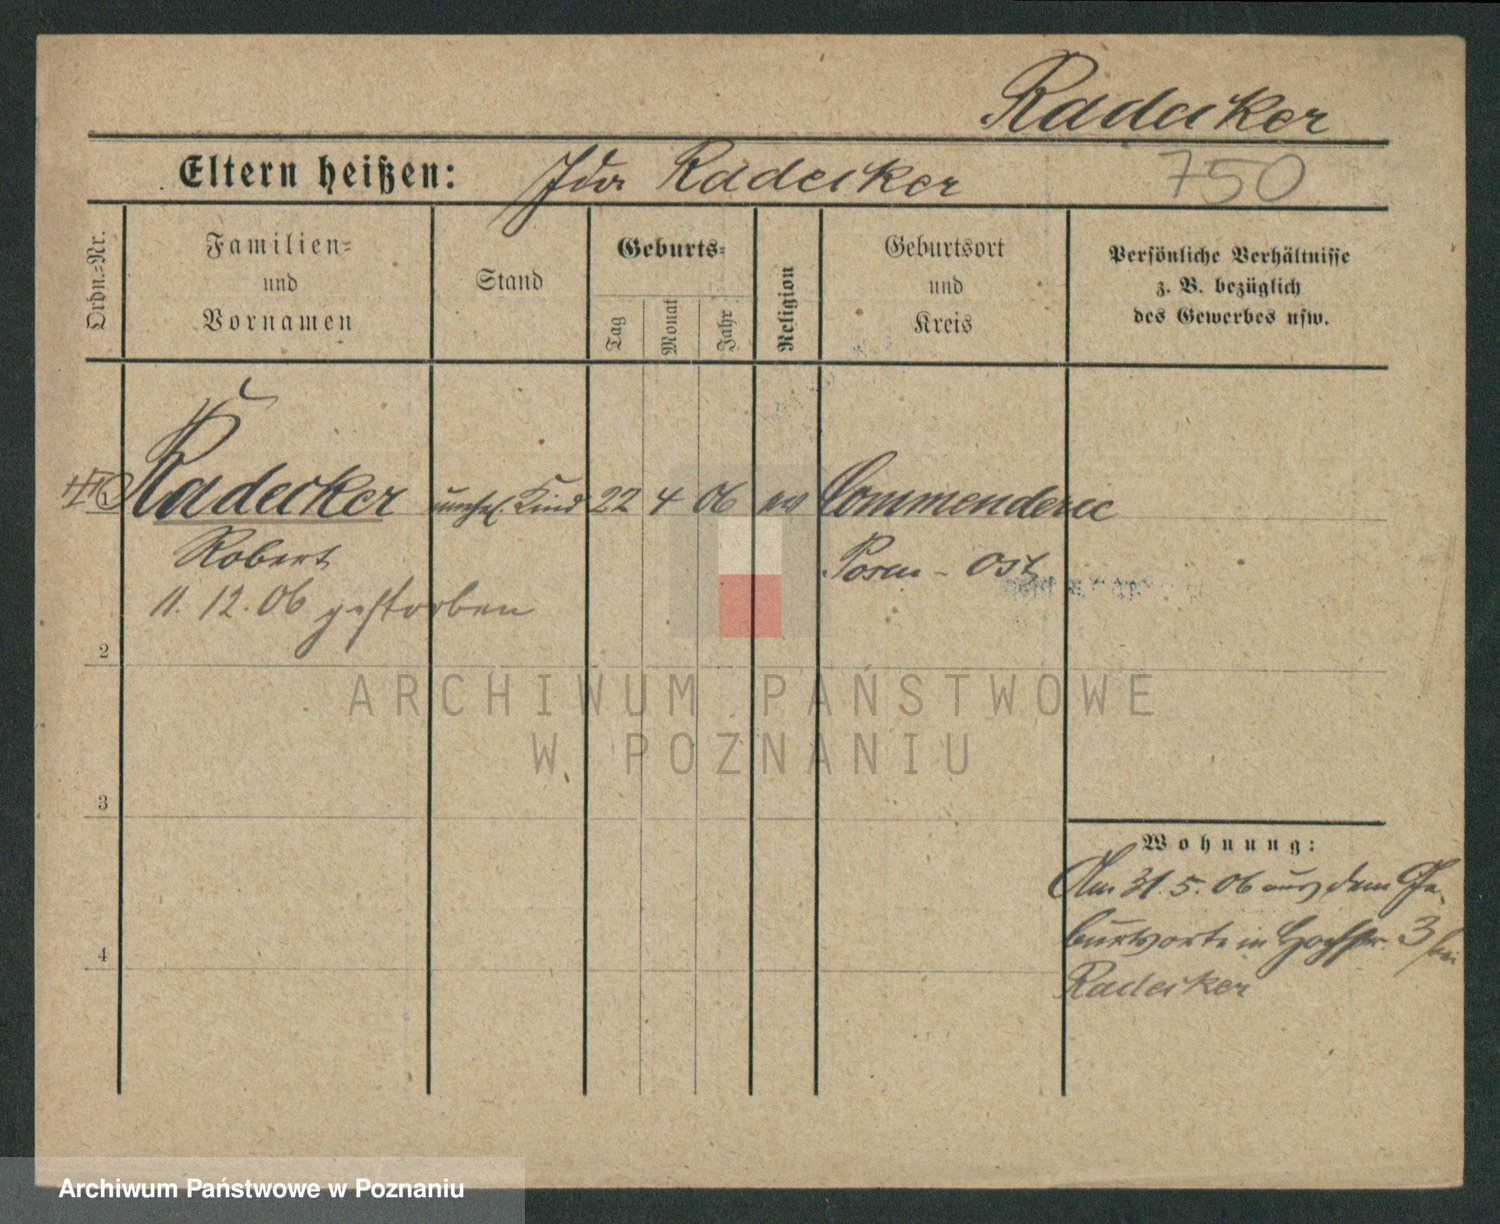 Radecker
Eltern heißen: Ida Radecker
750
Ordn.=Nr.
Familien=
und
Vornamen
Stand
Geburts=
Tag
Monat
Jahr
Religion
Geburtsort
und
Kreis
Persönliche Verhältnisse
z. B. bezüglich
des Gewerbes usw.
Radecker unehel. Kind 22 4 06 ev Commenderie
Robert Posen - Ost
11. 12. 06 gestorben
2
3
4
Wohnung:
Am 31. 5. 06 aus dem Ge-
burtsorte in Hochstr. 3 bei
Radecker
ARCHIWUM PAŃSTWOWE
W POZNANIU
Archiwum Państwowe w Poznaniu